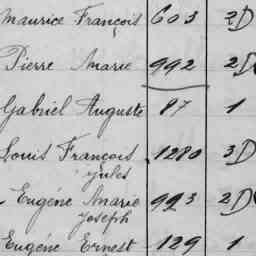 Maurice François 603 2D
Pierre Marie 992 2D
Gabriel Auguste 87 1
Louis François 1280 3D
Jules
Eugéne Marie 993 2D
Joseph
Eugéne Ernest 129 1